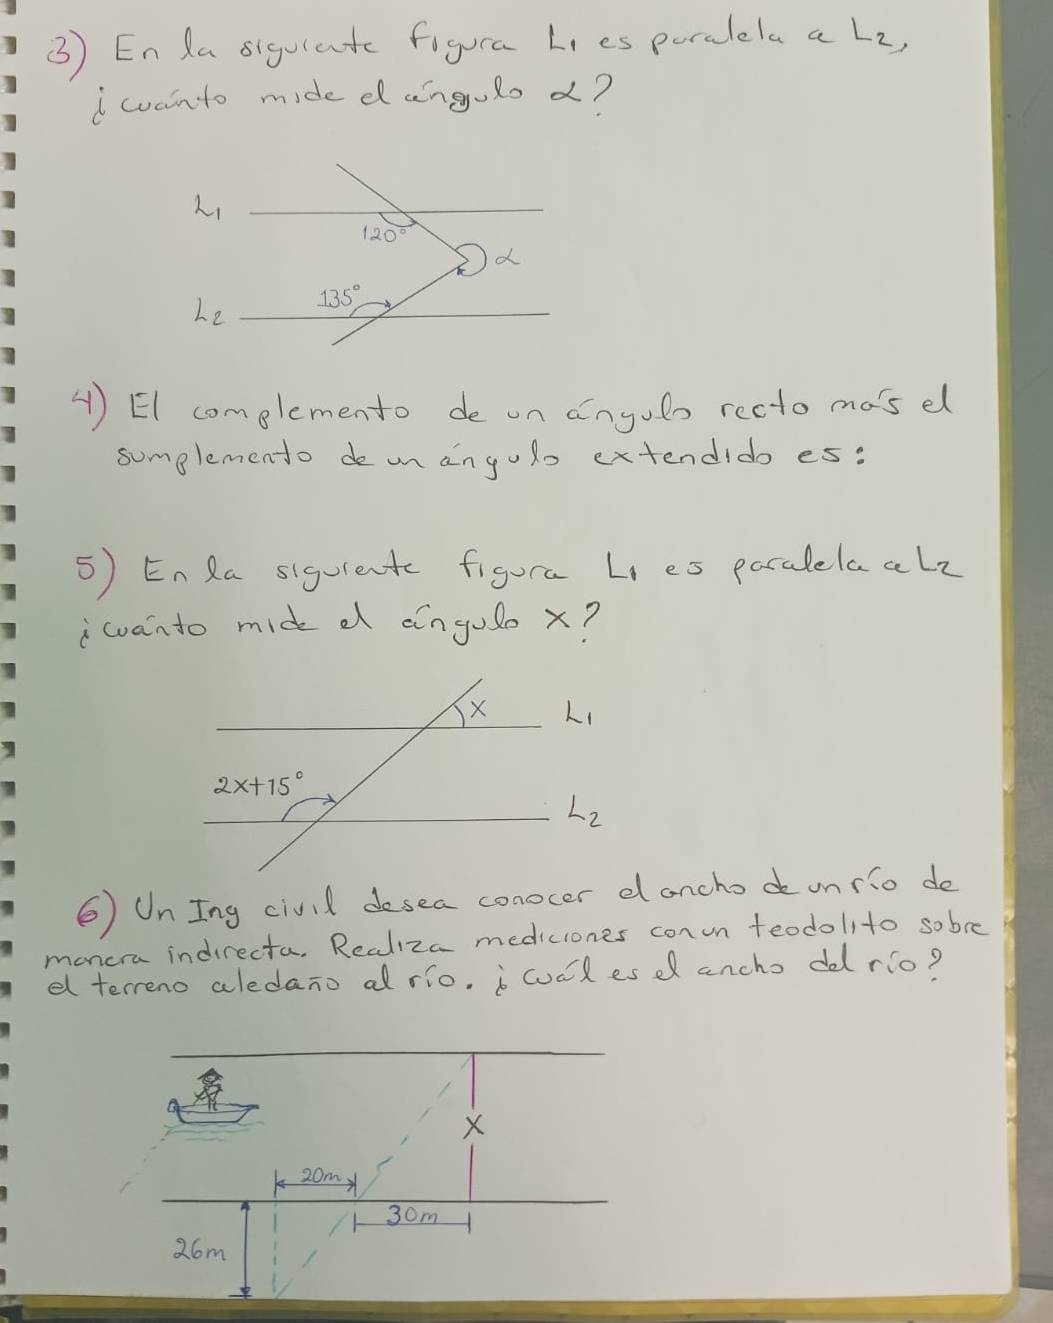 3) En la siguiente figura L1 es paralela a L2,
¿cuánto mide el ángulo α?
L1
120°
α
135°
L2
4) El complemento de un ángulo recto más el
sumplemento de un ángulo extendido es:
5) En la siguiente figura L1 es paralela a L2
¿cuánto mide el ángulo x?
x
L1
2x+15°
L2
6) Un Ing civil desea conocer el ancho de un río de
manera indirecta. Realiza mediciones con un teodolito sobre
el terreno aledaño al río. ¿cuál es el ancho del río?
X
20m
30m
26m